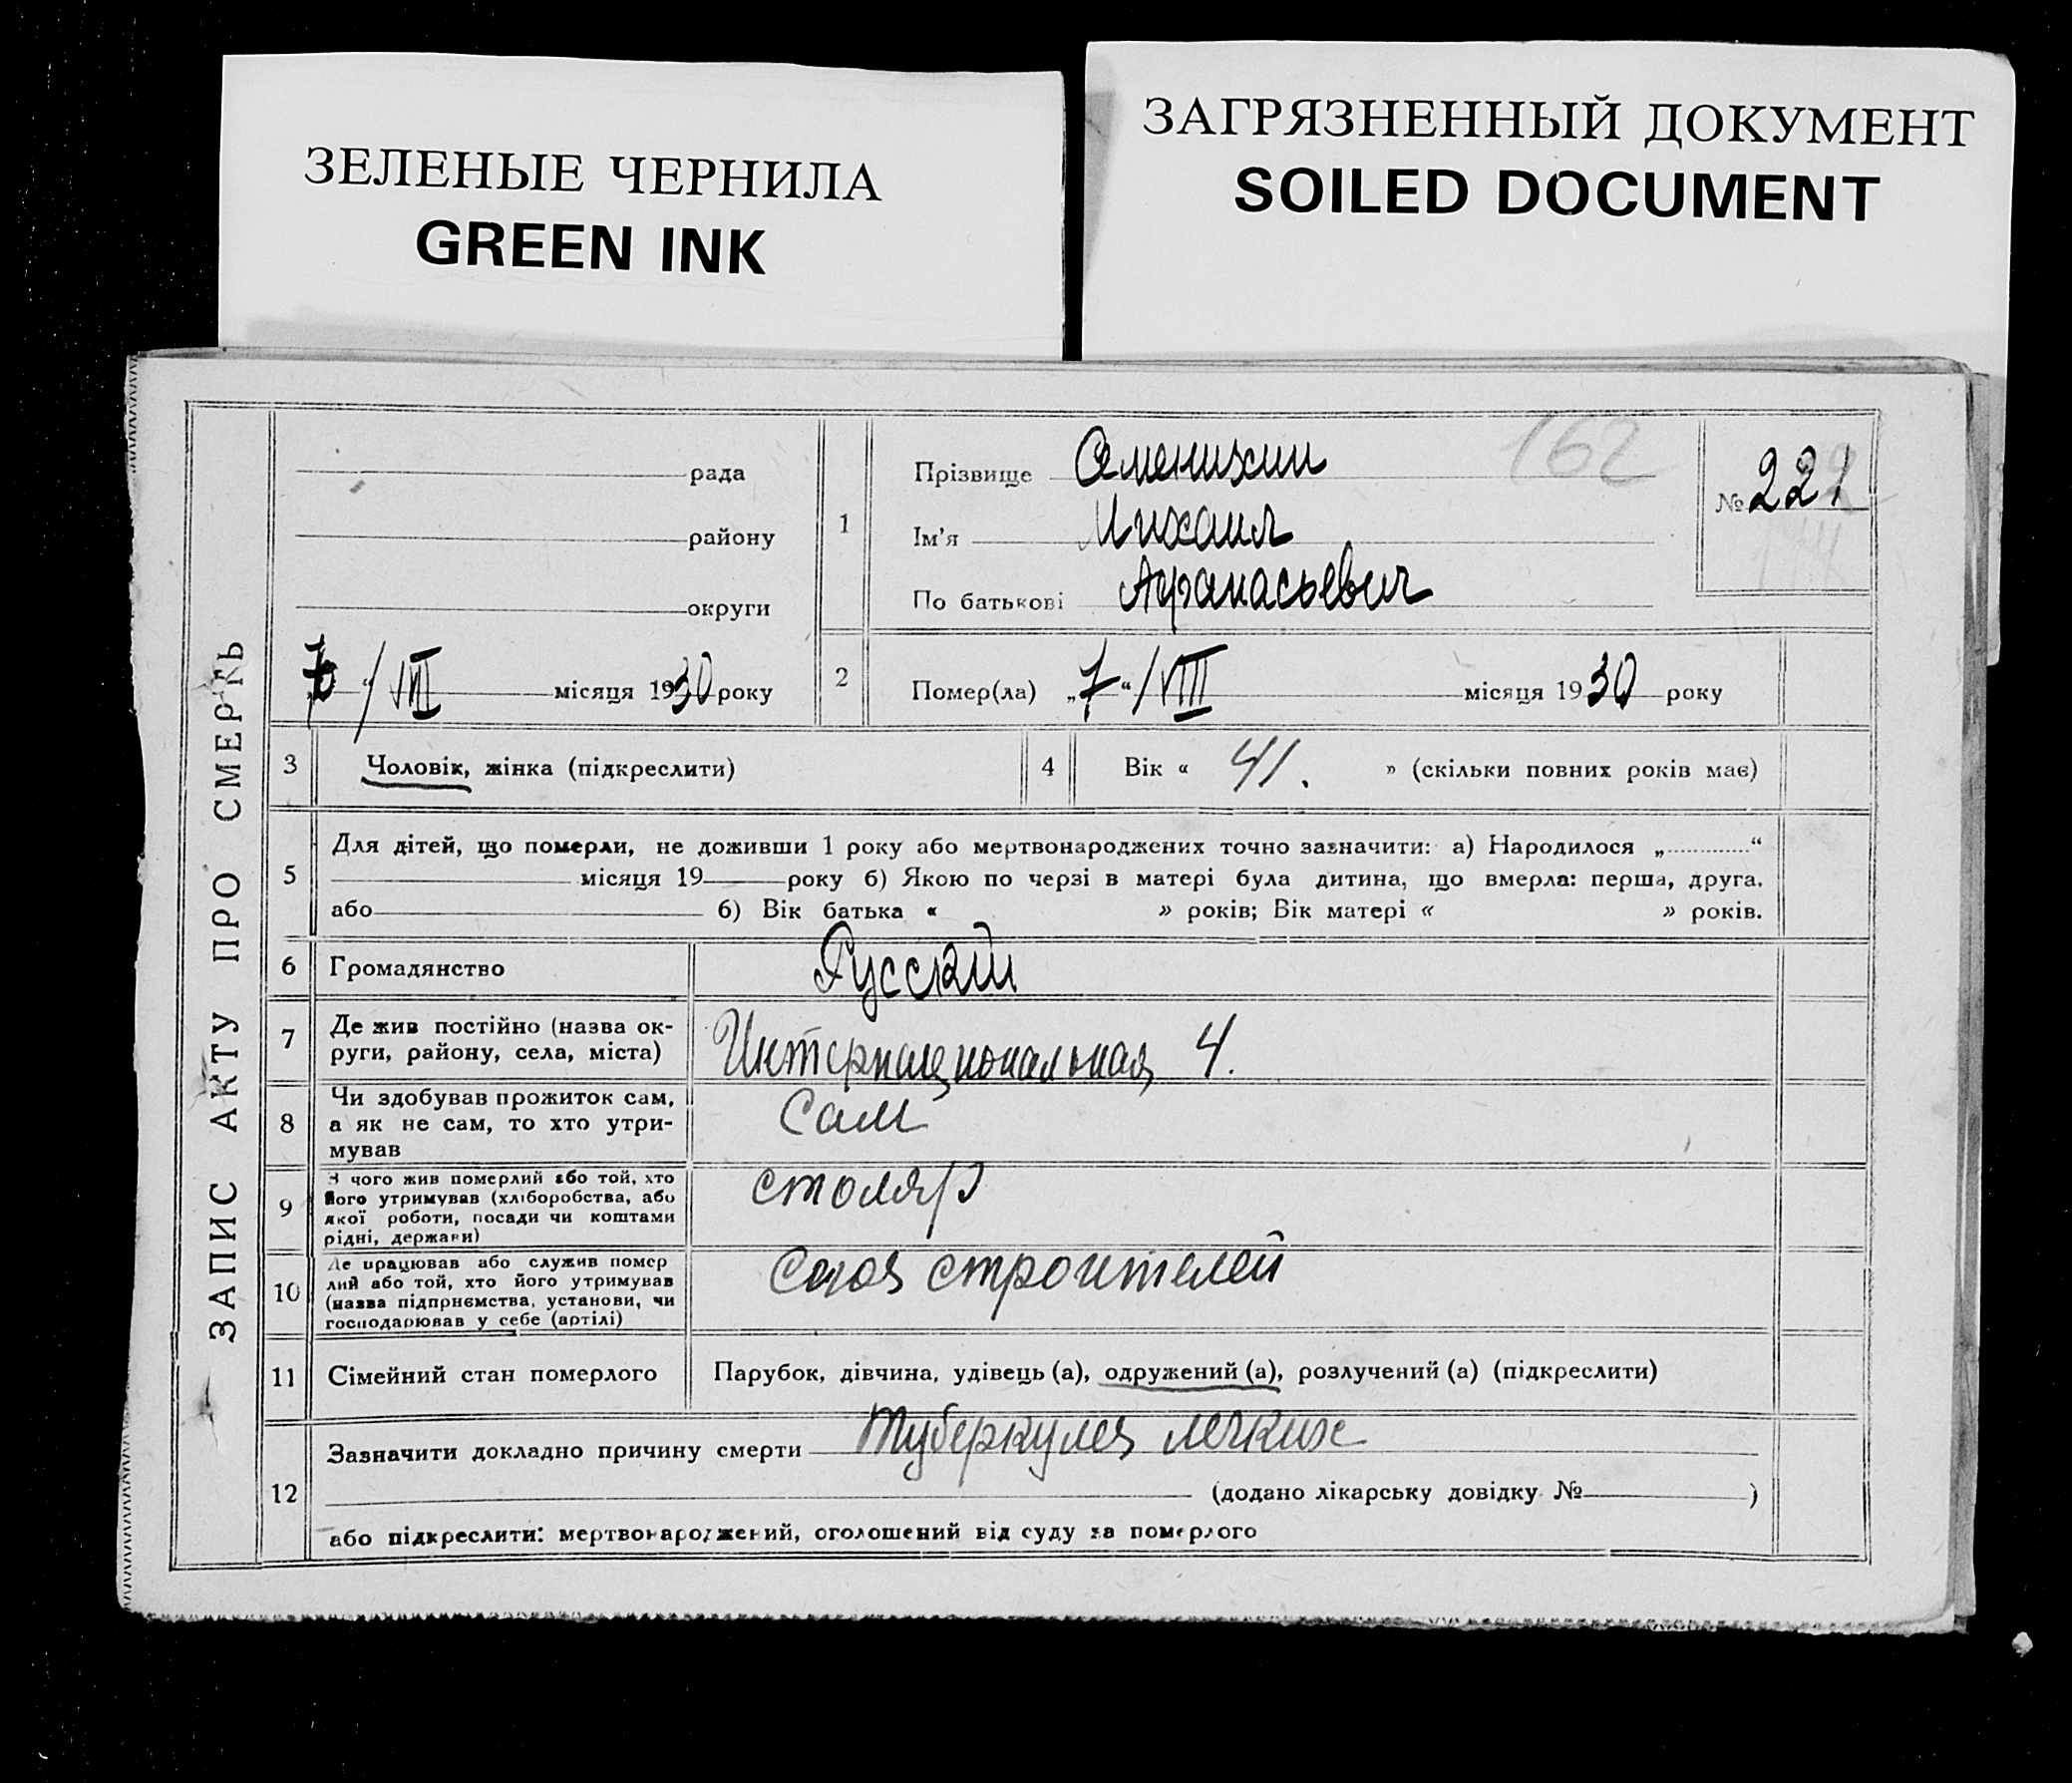 ЗЕЛЕНЫЕ ЧЕРНИЛА
GREEN INK
ЗАГРЯЗНЕННЫЙ ДОКУМЕНТ
SOILED DOCUMENT
ЗАПИС АКТУ ПРО СМЕРТЬ
рада
району
округи
„7“ / VIII місяця 1930 року
1
Прізвище Семенихин
162
№ 221
Ім'я Михаил
По батькові Афанасьевич
2
Помер(ла) „7“ / VIII місяця 1930 року
3 Чоловік, жінка (підкреслити)
4 Вік « 41. » (скільки повних років має)
5
Для дітей, що померли, не доживши 1 року або мертвонароджених точно зазначити: а) Народилося „ “
місяця 19 року б) Якою по черзі в матері була дитина, що вмерла: перша, друга.
або б) Вік батька « » років; Вік матері « » років.
6 Громадянство Русский
7
Де жив постійно (назва ок-
руги, району, села, міста)
Интернациональная 4.
8
Чи здобував прожиток сам,
а як не сам, то хто утри-
мував
Сам
9
З чого жив померлий або той, хто
його утримував (хліборобства, або
якої роботи, посади чи коштами
рідні, держави)
столяр
10
Де працював або служив помер
лий або той, хто його утримував
(назва підприємства, установи, чи
господарював у себе (артілі)
Союз строителей
11 Сімейний стан померлого Парубок, дівчина, удівець (а), одружений (а), розлучений (а) (підкреслити)
12
Зазначити докладно причину смерти Туберкулез легких
(додано лікарську довідку № )
або підкреслити: мертвонароджений, оголошений від суду за померлого